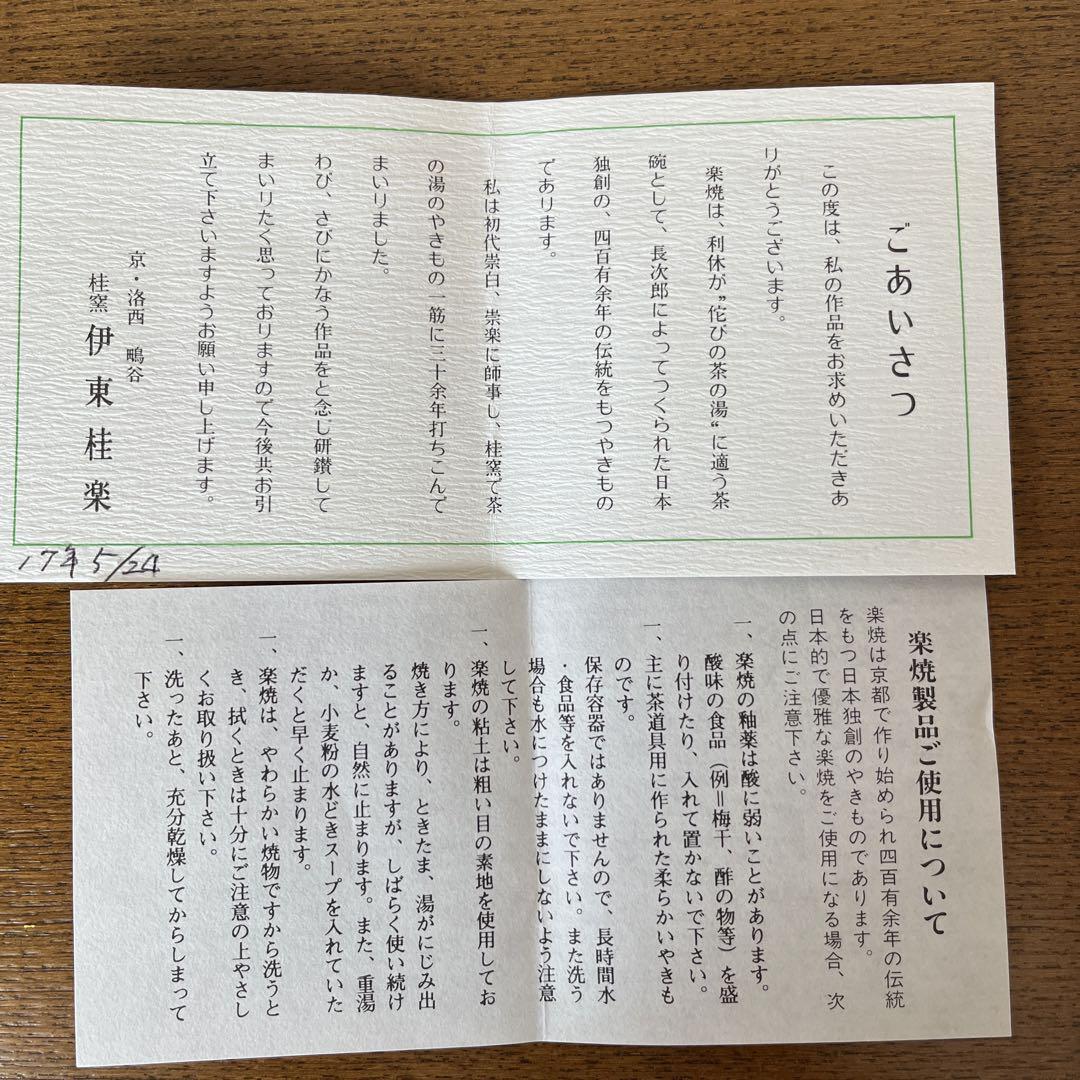 ごあいさつ
この度は、私の作品をお求めいただきあ
りがとうございます。
楽焼は、利休が〝侘びの茶の湯〟に適う茶
碗として、長次郎によってつくられた日本
独創の、四百有余年の伝統をもつやきもの
であります。
私は初代崇白、崇楽に師事し、桂窯で茶
の湯のやきもの一筋に三十余年打ちこんで
まいりました。
わび、さびにかなう作品をと念じ研鑽して
まいりたく思っておりますので今後共お引
立て下さいますようお願い申し上げます。
京・洛西 鴫谷
桂窯 伊東桂楽
17年5/24
楽焼製品ご使用について
楽焼は京都で作り始められ四百有余年の伝統
をもつ日本独創のやきものであります。
日本的で優雅な楽焼をご使用になる場合、次
の点にご注意下さい。
一、楽焼の釉薬は酸に弱いことがあります。
酸味の食品（例＝梅干、酢の物等）を盛
り付けたり、入れて置かないで下さい。
一、主に茶道具用に作られた柔らかいやきも
のです。
保存容器ではありませんので、長時間水
・食品等を入れないで下さい。また洗う
場合も水につけたままにしないよう注意
して下さい。
一、楽焼の粘土は粗い目の素地を使用してお
ります。
焼き方により、ときたま、湯がにじみ出
ることがありますが、しばらく使い続け
ますと、自然に止まります。また、重湯
か、小麦粉の水どきスープを入れていた
だくと早く止まります。
一、楽焼は、やわらかい焼物ですから洗うと
き、拭くときは十分にご注意の上やさし
くお取り扱い下さい。
一、洗ったあと、充分乾燥してからしまって
下さい。